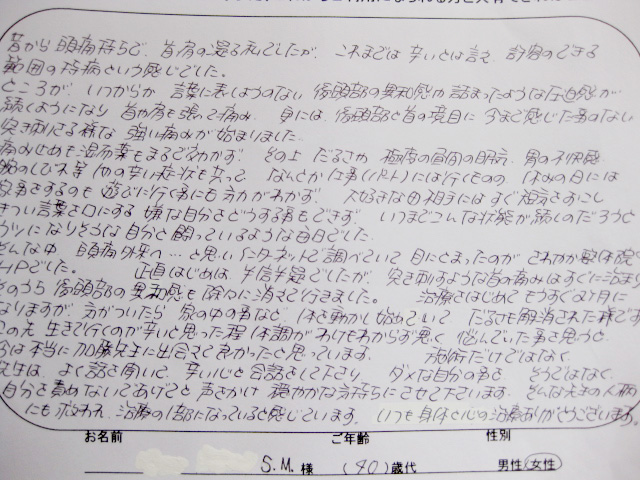 昔から頭痛持ちで、首肩の凝る私でしたが、これまでは辛いとは言え、許容のできる
範囲の持病という感じでした。
ところが、いつからか 言葉に表しようのない 後頭部の異和感や 詰まったような圧迫感が
続くようになり 首や肩も張って痛み 更には、後頭部と首の境目に 今まで感じた事のない
突き刺さる様な 強い痛みが始まりました。
痛み止めも湿布薬もまるで効かず、その上 だるさや 極度の昼間の眠気、胃の不快感
腕のしびれ等 他の辛い症状も我って なんとか仕事(パート)には行くものの 休みの日には
家事をするのも 遊びに行く事にも 気力がわかず、大好きな 相手にはすぐ
きつい言葉を口にする 嫌な自分をどうする事もできず いつまでこんな状態が続くのだろうと
うつになりそうな自分と 闘っているような毎日でした。
そんな中、頭痛外来へ…と思いインターネットで調べていて 目にとまったのが さわやか整体院
HPでした。 正直はじめは 半信半疑でしたが、突き刺すような首の痛みはすぐに治まり
そのうち 後頭部の異和感も 徐々に 消えて行きました。 治療をはじめて もうすぐ2ヶ月に
なりますが、気がついたら 家の中の事など、体を動かし始めていて だるさも解消された様です
この先 生きて行くのが辛いと思った程 体調がわけもわからず悪く 悩んでいた事を思うと
今は本当に 加藤先生に出会えて良かったと思っています。 施術だけではなく
先生は、よく話を聞いて 辛い心と会話をして下さり、ダメな自分の事を そうではなく
自分を責めないであげてと 声をかけ 穏やかな気持ちにさせて下さいます。そんな先生の人柄
にも 治療の1部になっていると感じています。いつも身体と心の治療ありがとうございます。
お名前 ご年齢 性別
S.M.様 (40)歳代 男性・女性